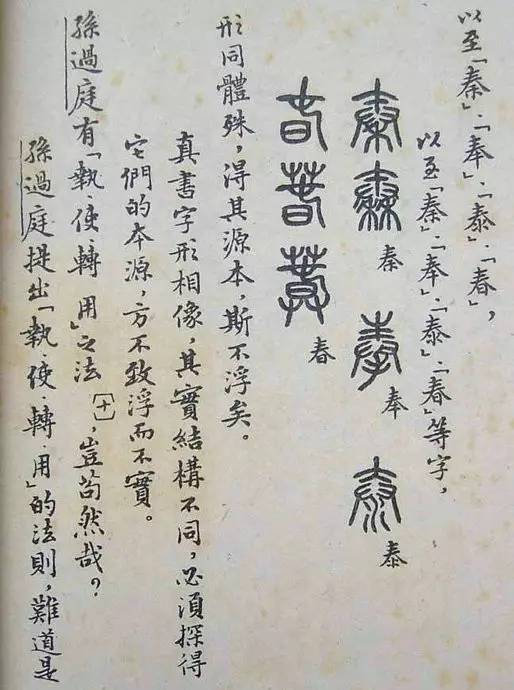 以至「秦」·「奉」·「泰」·「春」，
以至「秦」·「奉」·「泰」·「春」等字，
秦秦秦 奉奉 泰泰
春春春春
形同體殊，得其源本，斯不浮矣。
真書字形相像，其實結構不同，必須探得
它們的本源，方不致浮而不實。
孫過庭有「執·使·轉·用」之法〔十〕，豈苟然哉？
孫過庭提出「執·使·轉·用」的法則，難道是